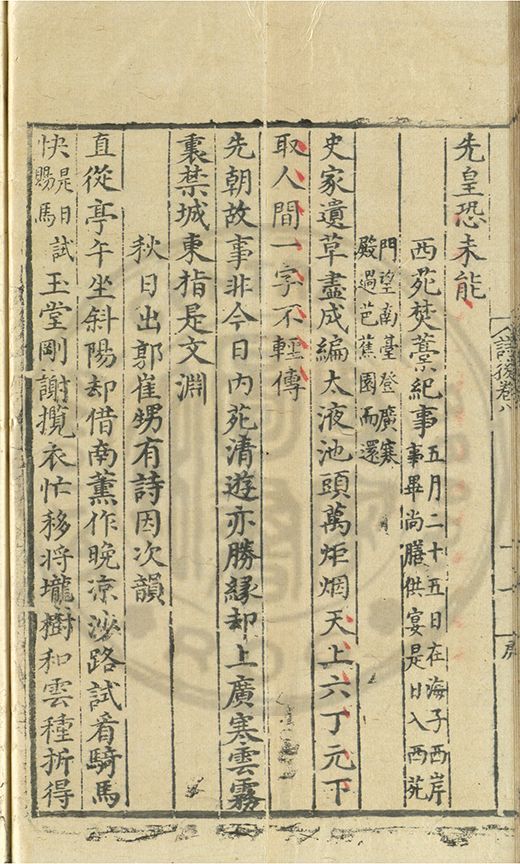 詩後卷八
先皇恐未能
西苑焚藁紀事
五月二十五日在海子西岸
事畢尚膳供宴是日入西苑
門望南臺登廣寒
殿過芭蕉園而還
史家遺草盡成編大液池頭萬炬烟天上六丁元下
取人間一字不輕傳
先朝故事非今日内苑清遊亦勝緣却上廣寒雲霧
裏禁城東指是文淵
秋日出郭崔甥有詩因次韻
直從亭午坐斜陽却借南薰作晚凉沙路試看騎馬
快是日試賜馬玉堂剛謝攬衣忙移將壠樹和雲種折得